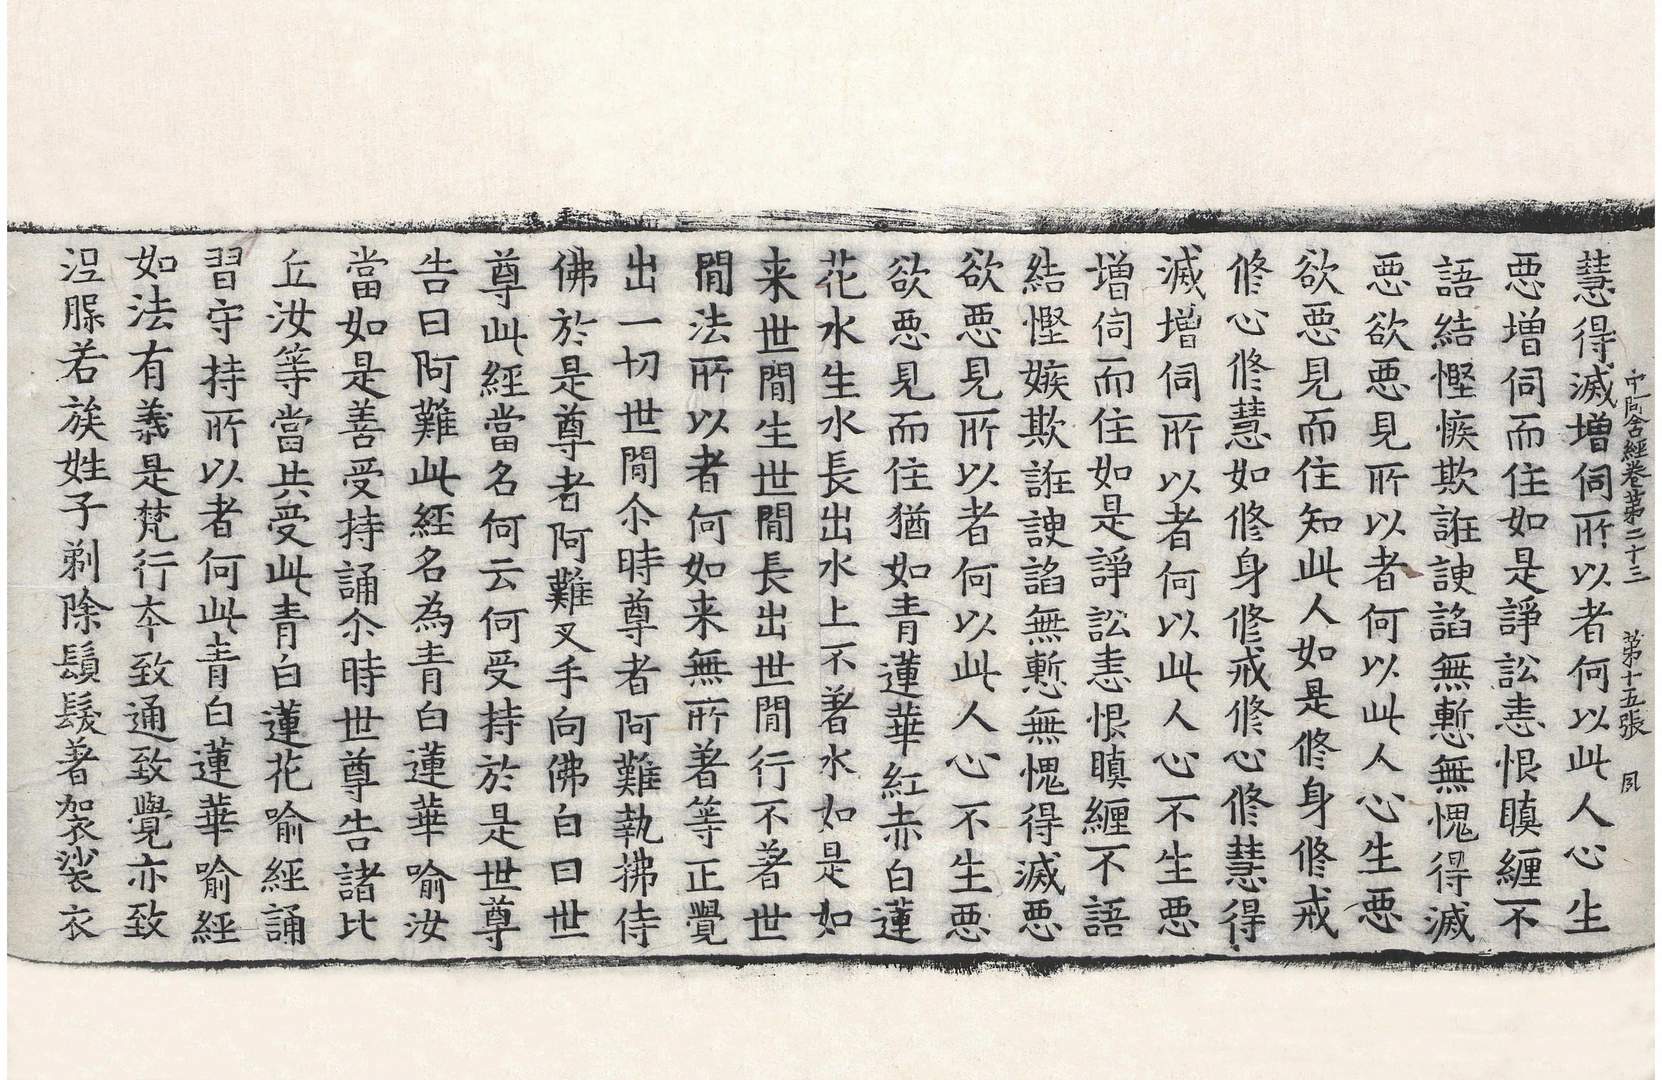 中阿含經卷第二十三 第十五張 夙
慧得滅增伺所以者何以此人心生
惡增伺而住如是諍訟恚恨瞋纏不
語結慳嫉欺誑諛諂無慙無愧得滅
惡欲惡見所以者何以此人心生惡
欲惡見而住知此人如是修身修戒
修心修慧如修身修戒修心修慧得
滅增伺所以者何以此人心不生惡
增伺而住如是諍訟恚恨瞋纏不語
結慳嫉欺誑諛諂無慙無愧得滅惡
欲惡見所以者何以此人心不生惡
欲惡見而住猶如青蓮華紅赤白蓮
花水生水長出水上不著水如是如
来世閒生世閒長出世閒行不著世
閒法所以者何如来無所著等正覺
出一切世閒尒時尊者阿難執拂侍
佛於是尊者阿難叉手向佛白曰世
尊此經當名何云何受持於是世尊
告曰阿難此經名為青白蓮華喻汝
當如是善受持誦尒時世尊告諸比
丘汝等當共受此青白蓮花喻經誦
習守持所以者何此青白蓮華喻經
如法有義是梵行夲致通致覺亦致
涅脲若族姓子剃除鬚髮著袈裟衣